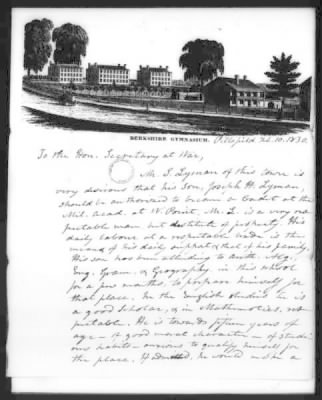 BERKSHIRE GYMNASIUM. Pittsfield Feb. 10. 1830.
To the Hon. Secretary at War,
Mr. S. Lyman of this town is
very desirous that his Son, Joseph H. Lyman,
should be authorized to become a Cadet at the
Mil. Acad. at W. Point. Mr. L. is a very res
pectable man but destitute of property. His
daily labour at a respectable trade is the
means of his daily support & that of his family.
His son has been attending to Arith. Alg.
Eng. Gram. & Geography, in this school
for a few months, to prepare himself for
that place. In the English studies he is
a good Scholar, & in Mathematics, res
pectable. He is towards fifteen years of
age - of good moral character - of studi
ous habits - anxious to qualify himself for
the place. If admitted, he would make a